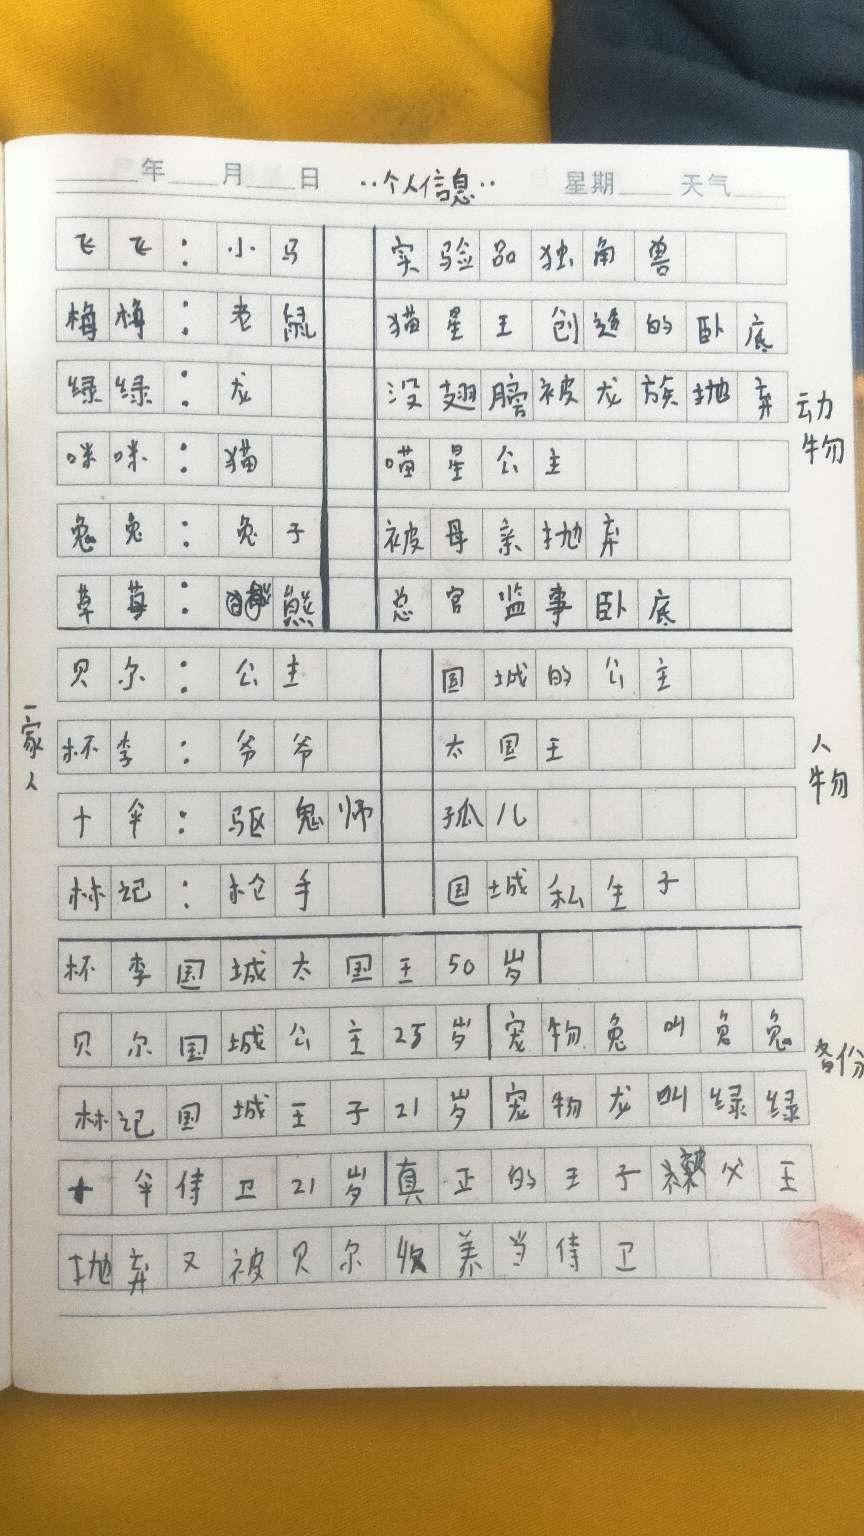 年 月 日 ··个人信息·· 星期 天气
飞飞：小马 实验品独角兽
梅梅：老鼠 猫星王创造的卧底
绿绿：龙 没翅膀被龙族抛弃
动物
咪咪：猫 喵星公主
兔兔：兔子 被母亲抛弃
草莓：熊 总官监事卧底
贝尔：公主 国城的公主
一家人
杯李：爷爷 太国王
人物
十伞：驱鬼师 孤儿
林记：枪手 国城私生子
杯李国城太国王50岁
贝尔国城公主25岁 宠物兔叫兔兔
备份
林记国城王子21岁 宠物龙叫绿绿
十伞侍卫21岁 真正的王子被父王
抛弃又被贝尔收养当侍卫